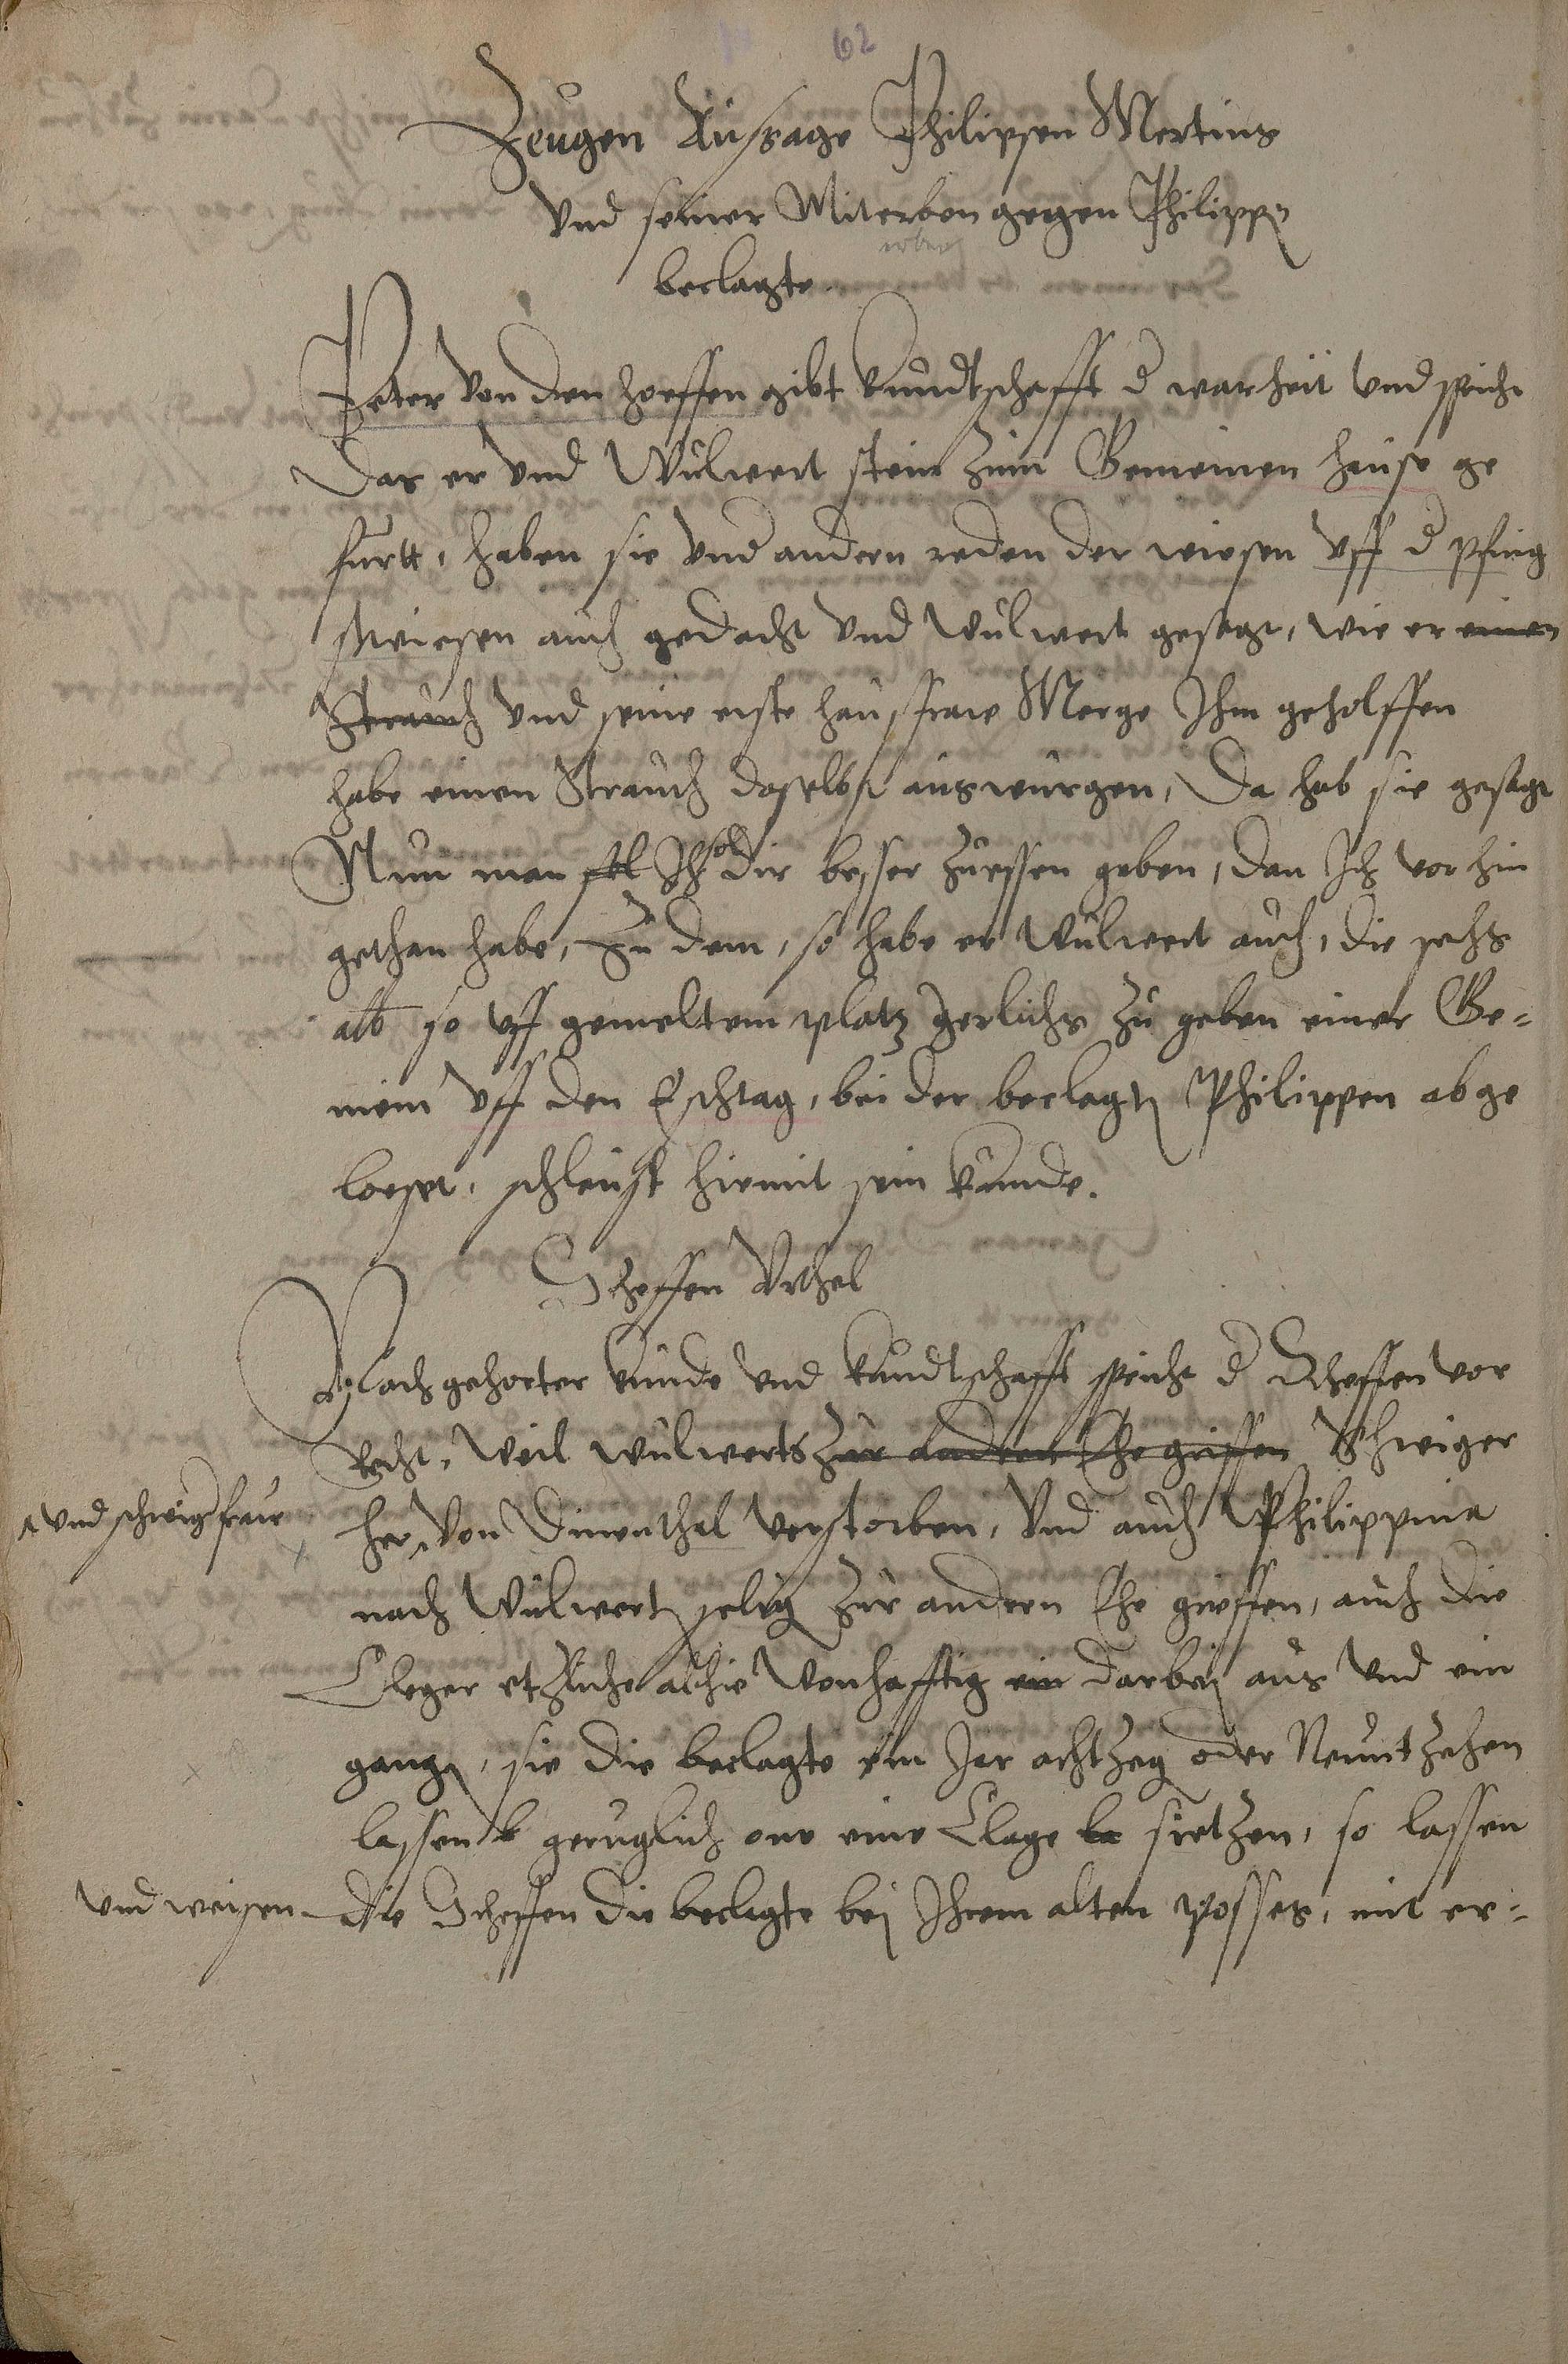 62
Zeugen Aussage Philipsen Mertins
Vnd seiner Miterben gegen Philipp
erben
beclagte.
Peter von den hoeffen gibt kundtschafft d warheit vnd spricht
Das er vnd Wulwert stein zum Gemeinen hause ge
furtt, haben sie vnd andern reden der wiesen vff d pfing
stwiesen auch gedacht vnd Wulwert gesagt, wie er einen
Strauch vnd seine erste hausfraw Merge Ihm geholffen
habe einen Strauch daselbst auswurgen, Da hab sie gesagt
Nun man sol Ich sol dir besser zuessen geben, dan Ich vorhin
gethan habe, Zu dem, so habe er Wulwert auch, die sechs
alb so vff gemeltem platz Jerlichs zu geben einer Ge-
mein vff den Eschtag, bei der beclagt Philippen abge
loeset, schleust hiemit sein kunde.
Scheffen Vrthel
Nach gehorter kunde vnd kundtschafft spricht d Scheffen vor
Recht, Weil Wulwerts zur andern Ehe griffen Schwiger
vnd schwigefraw
her von Dinenthal verstorben, Vnd auch Philippina
nach Wulwert selig zur andern Ehe grieffen, auch die
Cleger etzliche alhie Wonhafftig ein darbei aus vnd ein
gang, sie die beclagte ein Jar achtzeg oder Neuntzehen
lassen geruglich one eine Clage be sietzen, so lassen
vnd weisen
die Scheffen die beclagte bei Ihrem alten posses, mit er-